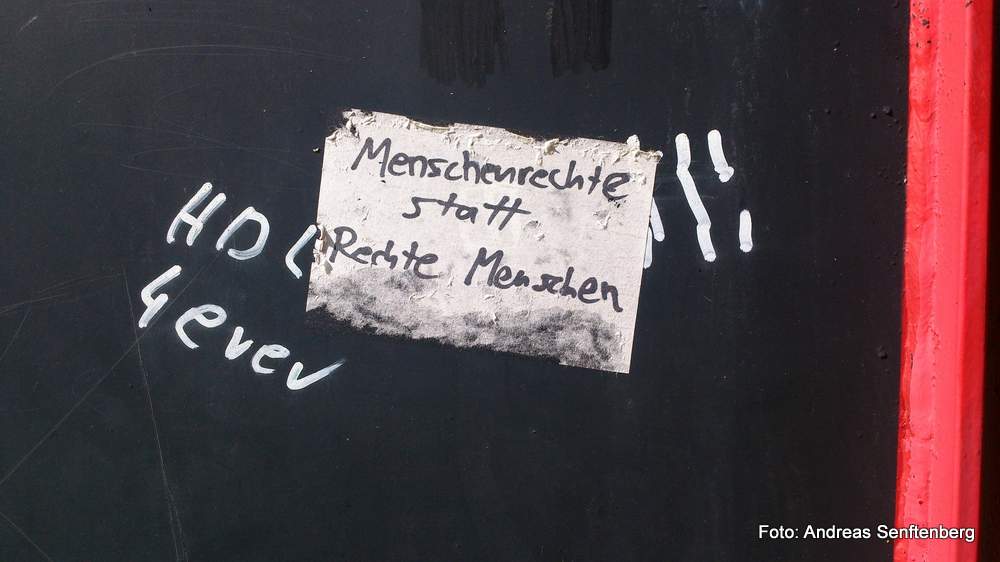 Menschenrechte
statt
Rechte Menschen
HDL
4ever
Foto: Andreas Senftenberg